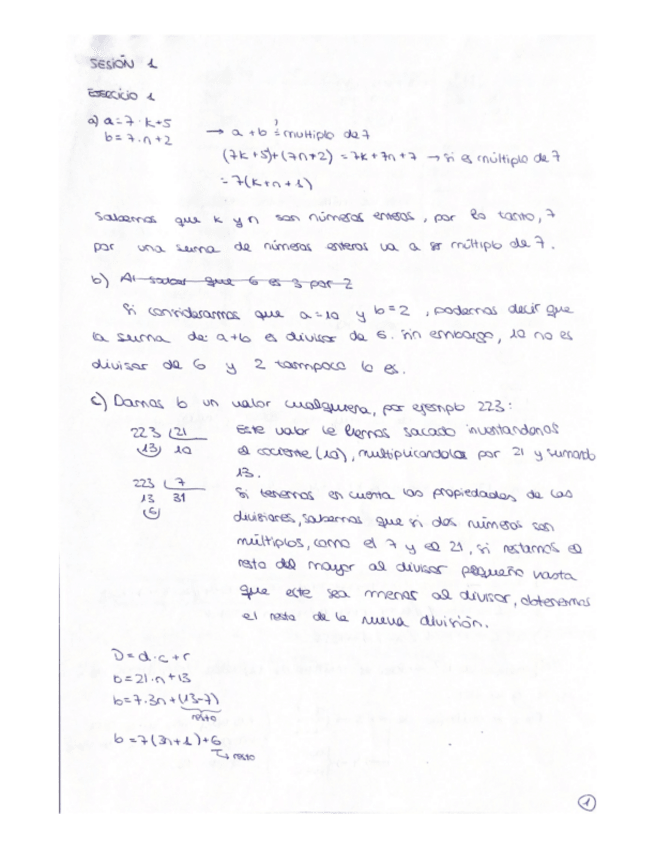 SESIÓN 1
EJERCICIO 1
a) a=7·k+5
b=7·n+2
→ a+b = multiplo de 7
(7k+5)+(7n+2) = 7k+7n+7 → si es múltiplo de 7
= 7(k+n+1)
Sabemos que k y n son números enteros, por lo tanto, 7
por una suma de números enteros va a ser múltiplo de 7.
b) Al saber que 6 es 3 por 2
Si consideramos que a=10 y b=2, podemos decir que
la suma de: a+b es divisor de 6. Sin embargo, 10 no es
divisor de 6 y 2 tampoco lo es.
c) Damos b un valor cualquiera, por ejemplo 223:
223 21
13 10
Este valor le hemos sacado inventandonos
el cociente (10), multiplicandolo por 21 y sumando
13.
223 7
13 31
6
Si tenemos en cuenta las propiedades de las
divisiones, sabemos que si dos números son
múltiplos, como el 7 y el 21, si restamos el
resto del mayor al divisor pequeño hasta
que este sea menor al divisor, obtenemos
el resto de la nueva división.
D=d·c+r
b=21·n+13
b=7·3n+(13-7)
resto
b=7(3n+1)+6
↳ resto
1